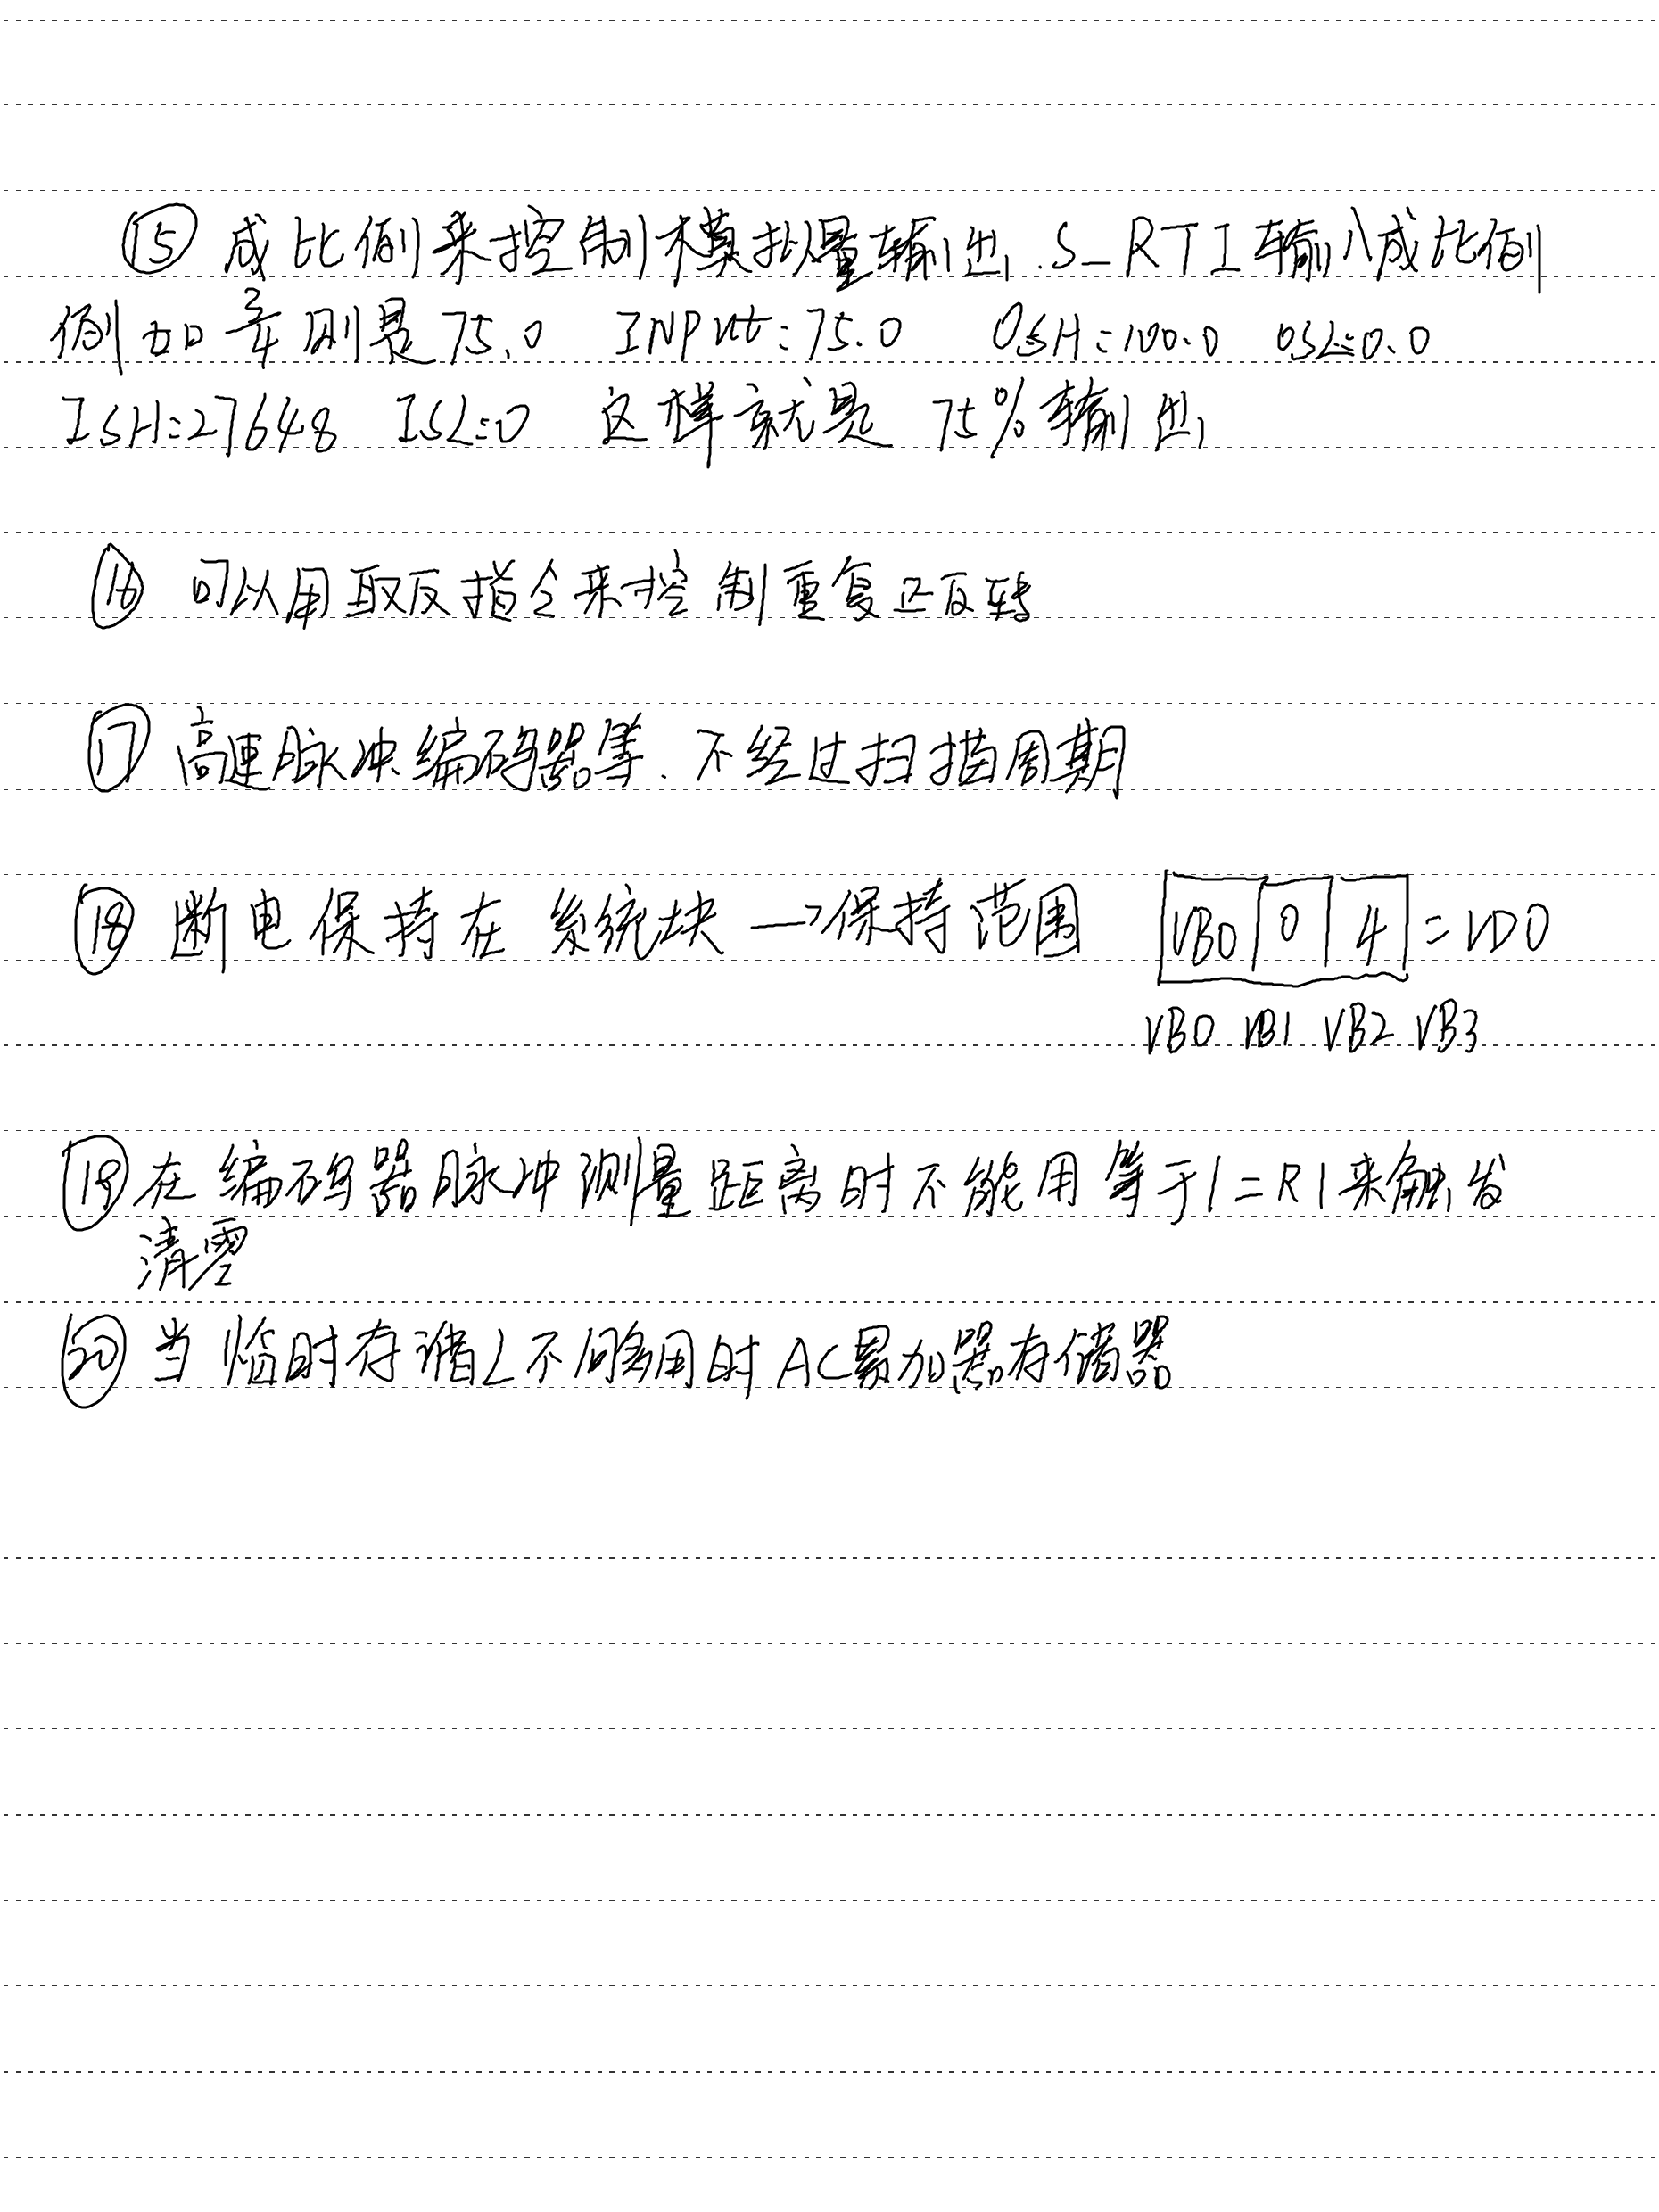 ⑮ 成比例来控制模拟量输出.S_RTI输入成比例
例如 3/4 则是 75.0 INPut=75.0 OSH=100.0 OSL=0.0
ISH=27648 ISL=0 这样就是 75%输出
⑯ 可以用取反指令来控制重复正反转
⑰ 高速脉冲编码器等.不经过扫描周期
⑱ 断电保持在 系统块 →保持范围 VB0 0 4 = VD0
VB0 VB1 VB2 VB3
⑲ 在编码器脉冲测量距离时不能用等于|=R|来触发
清零
⑳ 当临时存诸L不够用时 AC累加器存储器